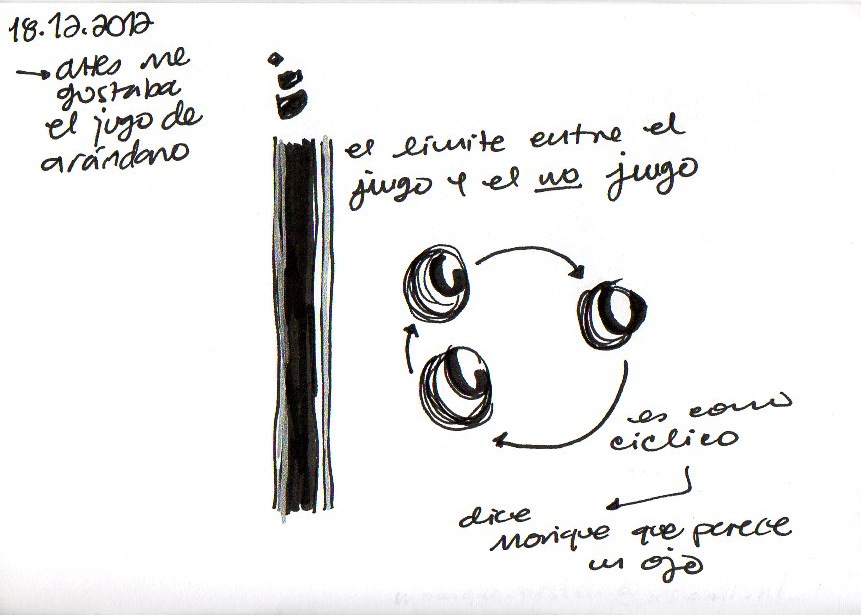 18.12.2012
→ antes me
gustaba
el jugo de
arándano
el límite entre el
jugo y el no jugo
es como
cíclico
dice
Monique que parece
un ojo